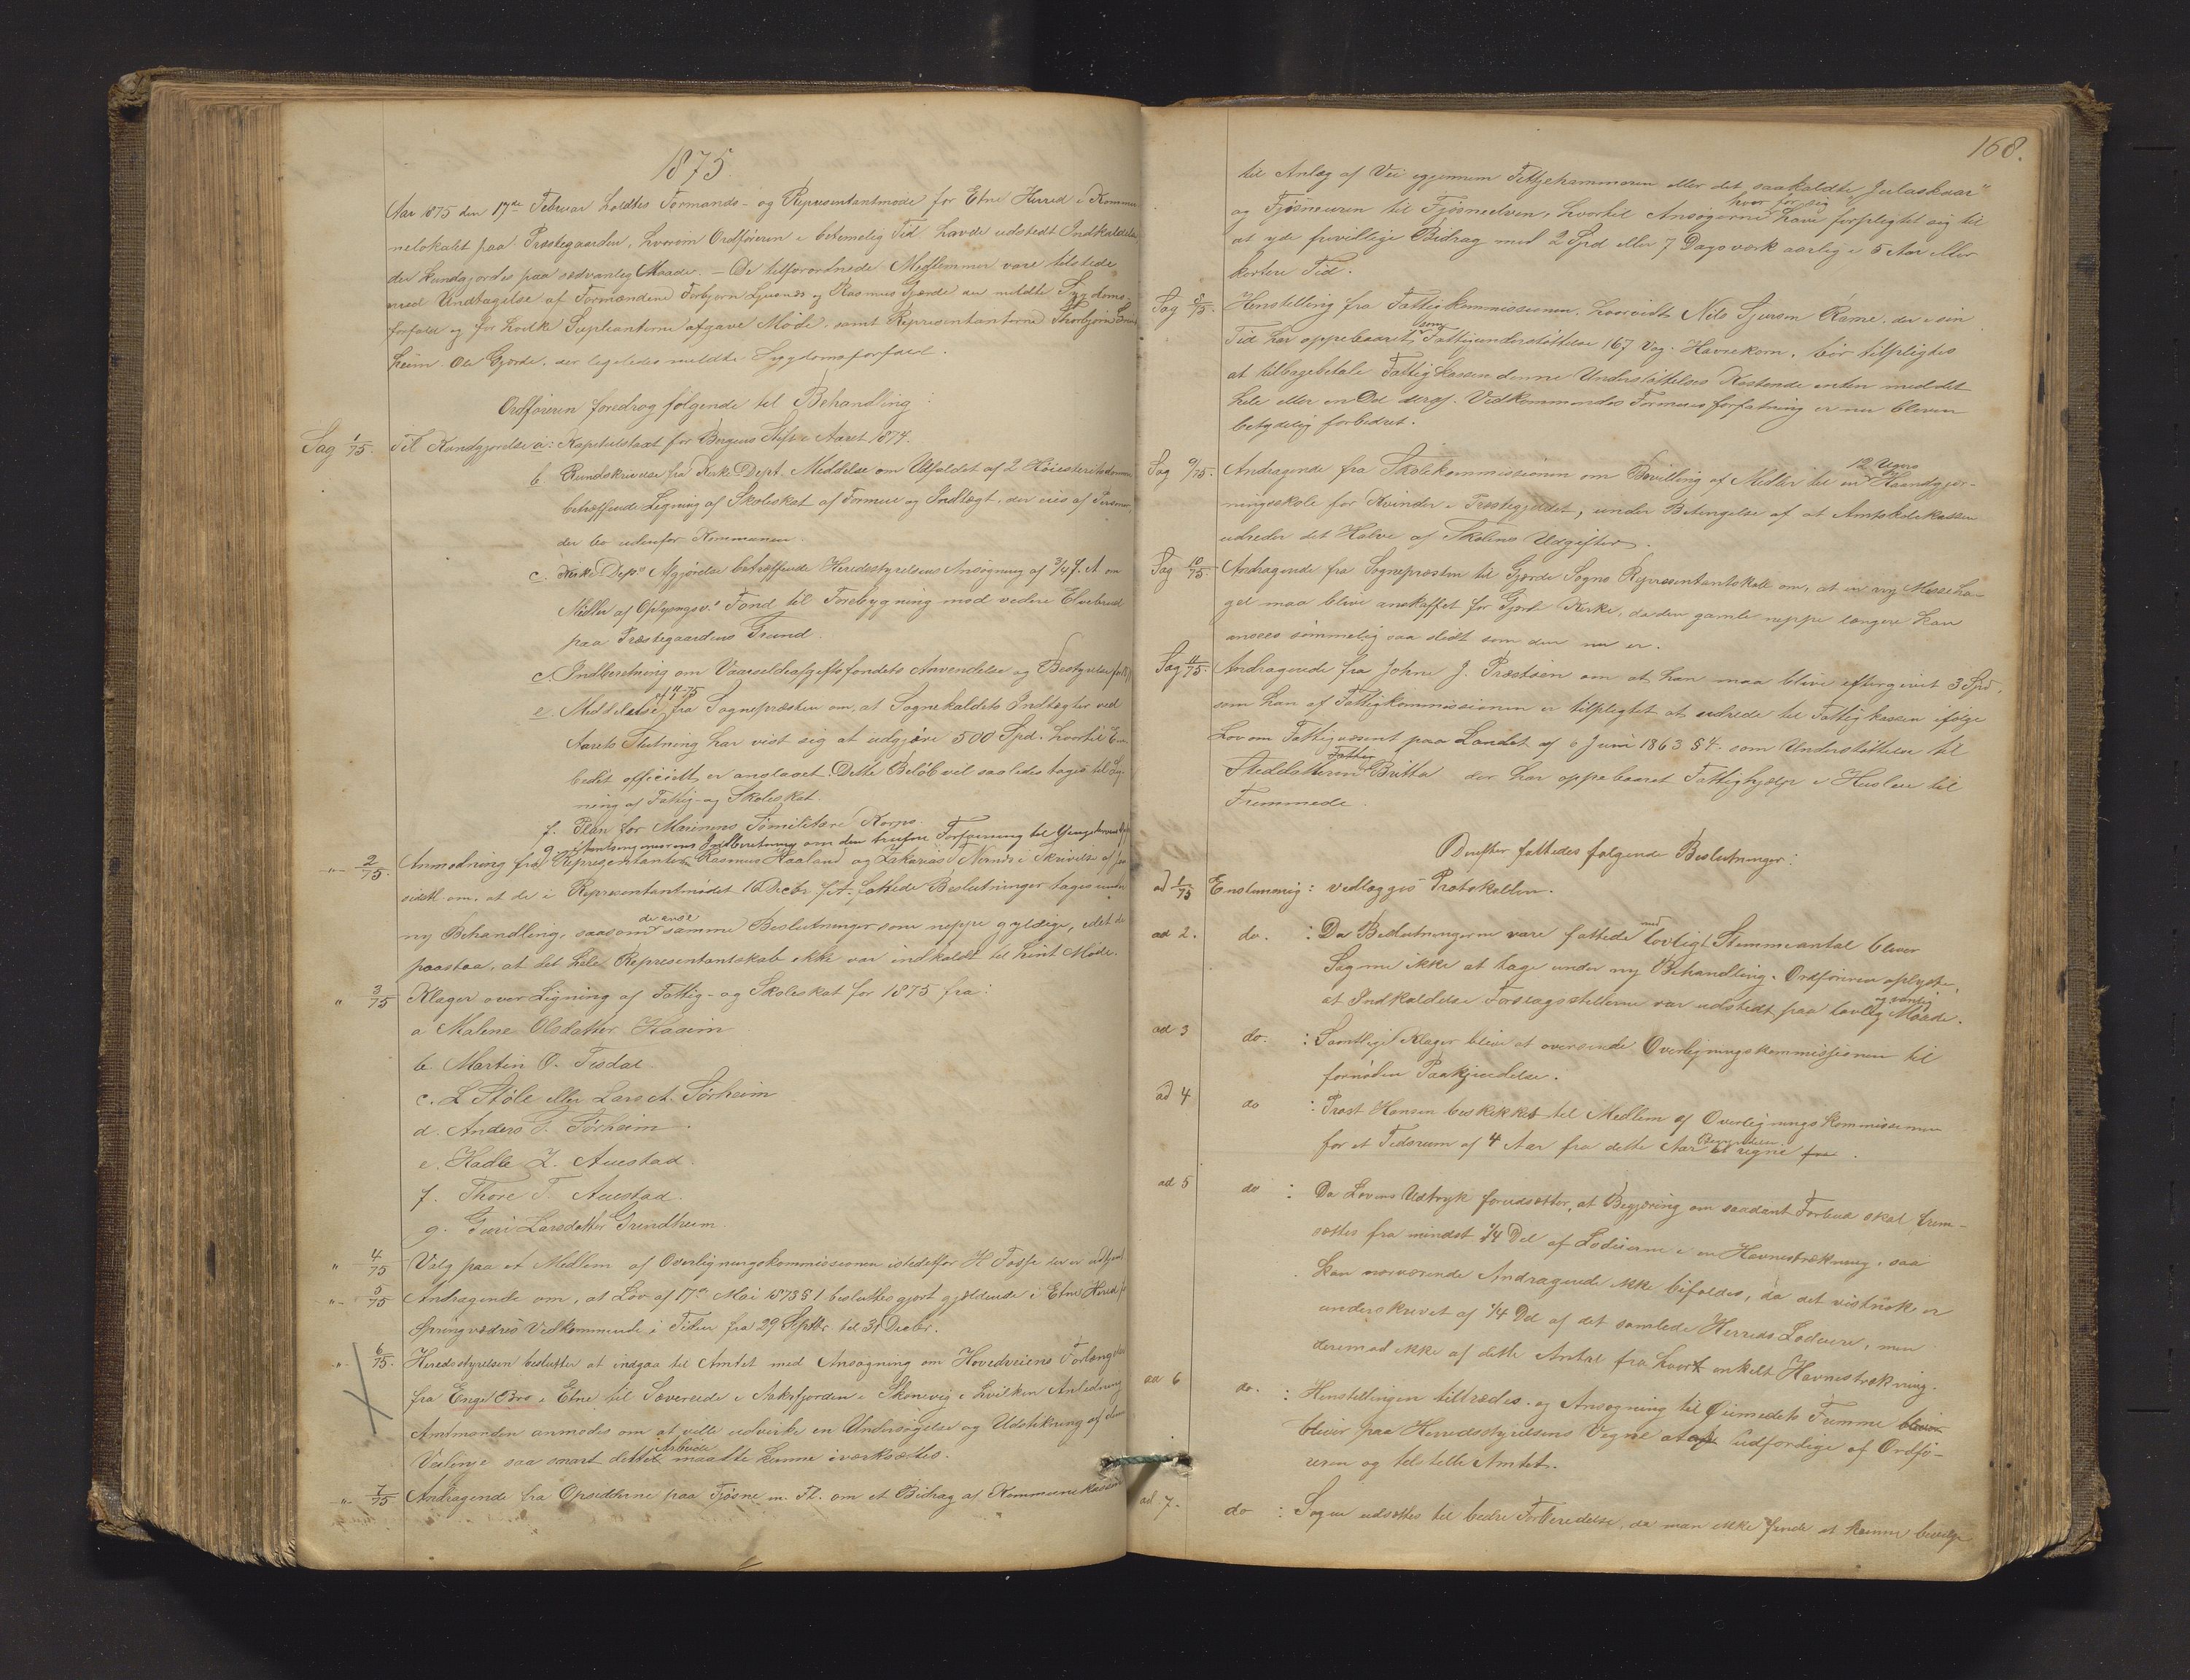 1875.
Aar 1875 den 17de Februar holdtes Formands- og Repræsentantmøde for Etne Herred i Kommu-
nelokalet paa Præstegaarden, hvorom Ordføreren i betimelig Tid havde udstedt Indkaldelse
der kundgjordes paa sædvanlig Maade. – De tilforordnede Medlemmer vare tilstede
med Undtagelse af Formændene Torbjørn og Rasmus Gjærde der meldte Sygdoms-
forfald og for hvilke Supleanterne afgave Møde, samt Repræsentanterne Thorbjørn
heim Ole Gjærde, der ligeledes meldte Sygdomsforfald.
Ordføreren foredrog følgende til Behandling:
Sag 1/75. Til Kundgjørelse a: Kapitelstaxt for Bergens Stift i Aaret 1874.
b. Rundskrivelse fra Kirke Dept. Meddelse om Udfaldet af 2 Høiesteretsdomme
betræffende Ligning af Skoleskat af Formue og Indtægt, der eies af Personer
der bo udenfor Kommunen.
c. Kirke Depts Afgjørelse betræffende Heredsstyrelsens Ansøgning af 3/4 f. A. om
Midler af Oplysngsv.s Fond til Forebygning mod videre Elvebrud
paa Præstegaardens Grund.
d. Indberetning om Vaarsildafgiftsfondets Anvendelse og Bestyrelse
e. Meddelelse af 4/2 75 fra Sognepræsten om, at Sognekaldets Indtægter ved
Aarets Slutning har vist sig at udgjøre 500 Spd. hvortil Em-
bedet officielt er anslaaet. Dette Beløb vil saaledes tages til Lig-
ning af Fattig- og Skoleskat.
f. Plan for Marinens Sømilitære Korps.
g. Amtsingeniørens Indberetning om den trufne Forføining til
" 2/75. Anmodning fra Repræsentanter Rasmus Haaland og Zakarias i Skrivelse af
sidstl. om, at de i Repræsentantmødet 16 Decbr f. A. fattede Beslutninger tages under
ny Behandling, saasom de anse samme Beslutninger som neppe gyldige, idet de
paastaa, at det hele Repræsentantskab ikke var indkaldt til hint Møde.
" 3/75 Klager over Ligning af Fattig- og Skoleskat for 1875 fra:
a Malene Olsdatter Haaeim
b. Martin O. Tesdal.
c. L Støle eller Lars A. Sørheim
d. Anders T. Sørheim.
e. Kadle Z. Auestad.
f. Thore T. Auestad.
g. Guri Larsdatter Grindheim.
" 4/75 Valg paa et Medlem af Overligningskommissionen istedetfor H Fosse der er
" 5/75 Andragende om, at Lov af 17de Mai 1873 § 1 besluttes gjort gjældende i Etne Hered for
Springvædres Vedkommende i Tiden fra 29 Septbr til 31 Decbr.
" 6/75. Heredsstyrelsen beslutter at indgaa til Amtet med Ansøgning om Hovedveiens Forlængelse
fra Enge Bro i Etne til Sævereide i Aakrefjorden i Skonevig i hvilken Anledning
Amtmanden anmodes om at ville udvirke en Undersøgelse og Udstikning af denne
Veilinje saa snart dette Arbeide maatte kunne iværksættes.
" 7/75 Andragende fra Opsidderne paa Fjøsne m. Fl. om et Bidrag af Kommunekassen
168.
til Anlæg af Vei igjennem Tettjehammeren eller det saakaldte
og Fjøsneuren til Fjøsneelven, hvortil Ansøgerne hver for sig have forpligtet sig til
at yde frivillige Bidrag med 2 Spd eller 7 Dagsværk aarlig i 5 Aar eller
kortere Tid.
Sag 8/75. Henstilling fra Fattigkommissionen, hvorvidt Nils Sjursen Rame, der i sin
Tid har oppebaaret som Fattigunderstøttelse 167 Vog. Havrekorn, bør tilpligtes
at tilbagebetale Fattigkassen denne Understøttelses Kostende enten med det
hele eller en Del deraf. Vedkommendes Formuesforfatning er nu bleven
betydelig forbedret.
Sag 9/75. Andragende fra Skolekommissionen om Bevilling af Midler til en 12 Ugers Haandgjer-
ningsskole for Kvinder i Præstegjeldet, under Betingelse af at Amtskolekassen
udreder det Halve af Skolens Udgifter.
Sag 10/75. Andragende fra Sognepræsten til Gjærde Sogns Repræsentantskab om, at en ny Messeha-
gel maa blive anskaffet for Gjærde Kirke, da den gamle neppe længere kan
ansees sømmelig saa slidt som den nu er.
Sag 11/75. Andragende fra Johne J. Præstsøn om at han maa blive eftergivet 3 Spd,
som han af Fattigkommissionen er tilpligtet at udrede til Fattigkassen ifølge
Lov om Fattigvæsent paa Landet af 6 Juni 1863 § 4. som Understøttelse til
Steddatteren Fattig Britta der har oppebaaret Fattighjælp i Husleie til
Fremmede.
Derefter fattedes følgende Beslutninger:
ad 1/75 Enstemmig: vedlægges Protokollen.
ad 2. do. : Da Beslutningerne vare fattede med lovligt Stemmeantal bliver
Sagene ikke at tage under ny Behandling. Ordføreren oplyste,
at Indkaldelse Forslagsstillerne var udstedt paa lovlig og vanlig Maade.
ad 3 do. : Samtlige Klager blive at oversende Overligningskommissionen til
fornøden Paakjendelse.
ad 4 do : Provst Hansen beskikket til Medlem af Overligningskommissionen
for et Tidsrum af 4 Aar fra dette Aars Begyndelse at regne fra.
ad 5 do : Da Lovens Udtryk forudsætter, at Begjæring om saadant Forbud skal frem-
sættes fra mindst 1/4 Del af Lodeierne i en Havnestrækning, saa
kan nærværende Andragende ikke bifaldes, da det vistnok er
underskrevet af 1/4 Del af det samlede Herreds Lodeiere, men
derimod ikke af dette Antal fra hvert enkelt Havnestrækning.
ad 6 do. : Henstillingen tiltrædes, og Ansøgning til Øiemedets Fremme bliver
bliver paa Herredsstyrelsens Vegne at udfærdige af Ordfø-
reren og tilstille Amtet.
ad 7. do : Sagen udsættes til bedre Forberedelse, da man ikke finder at kunne bevilge